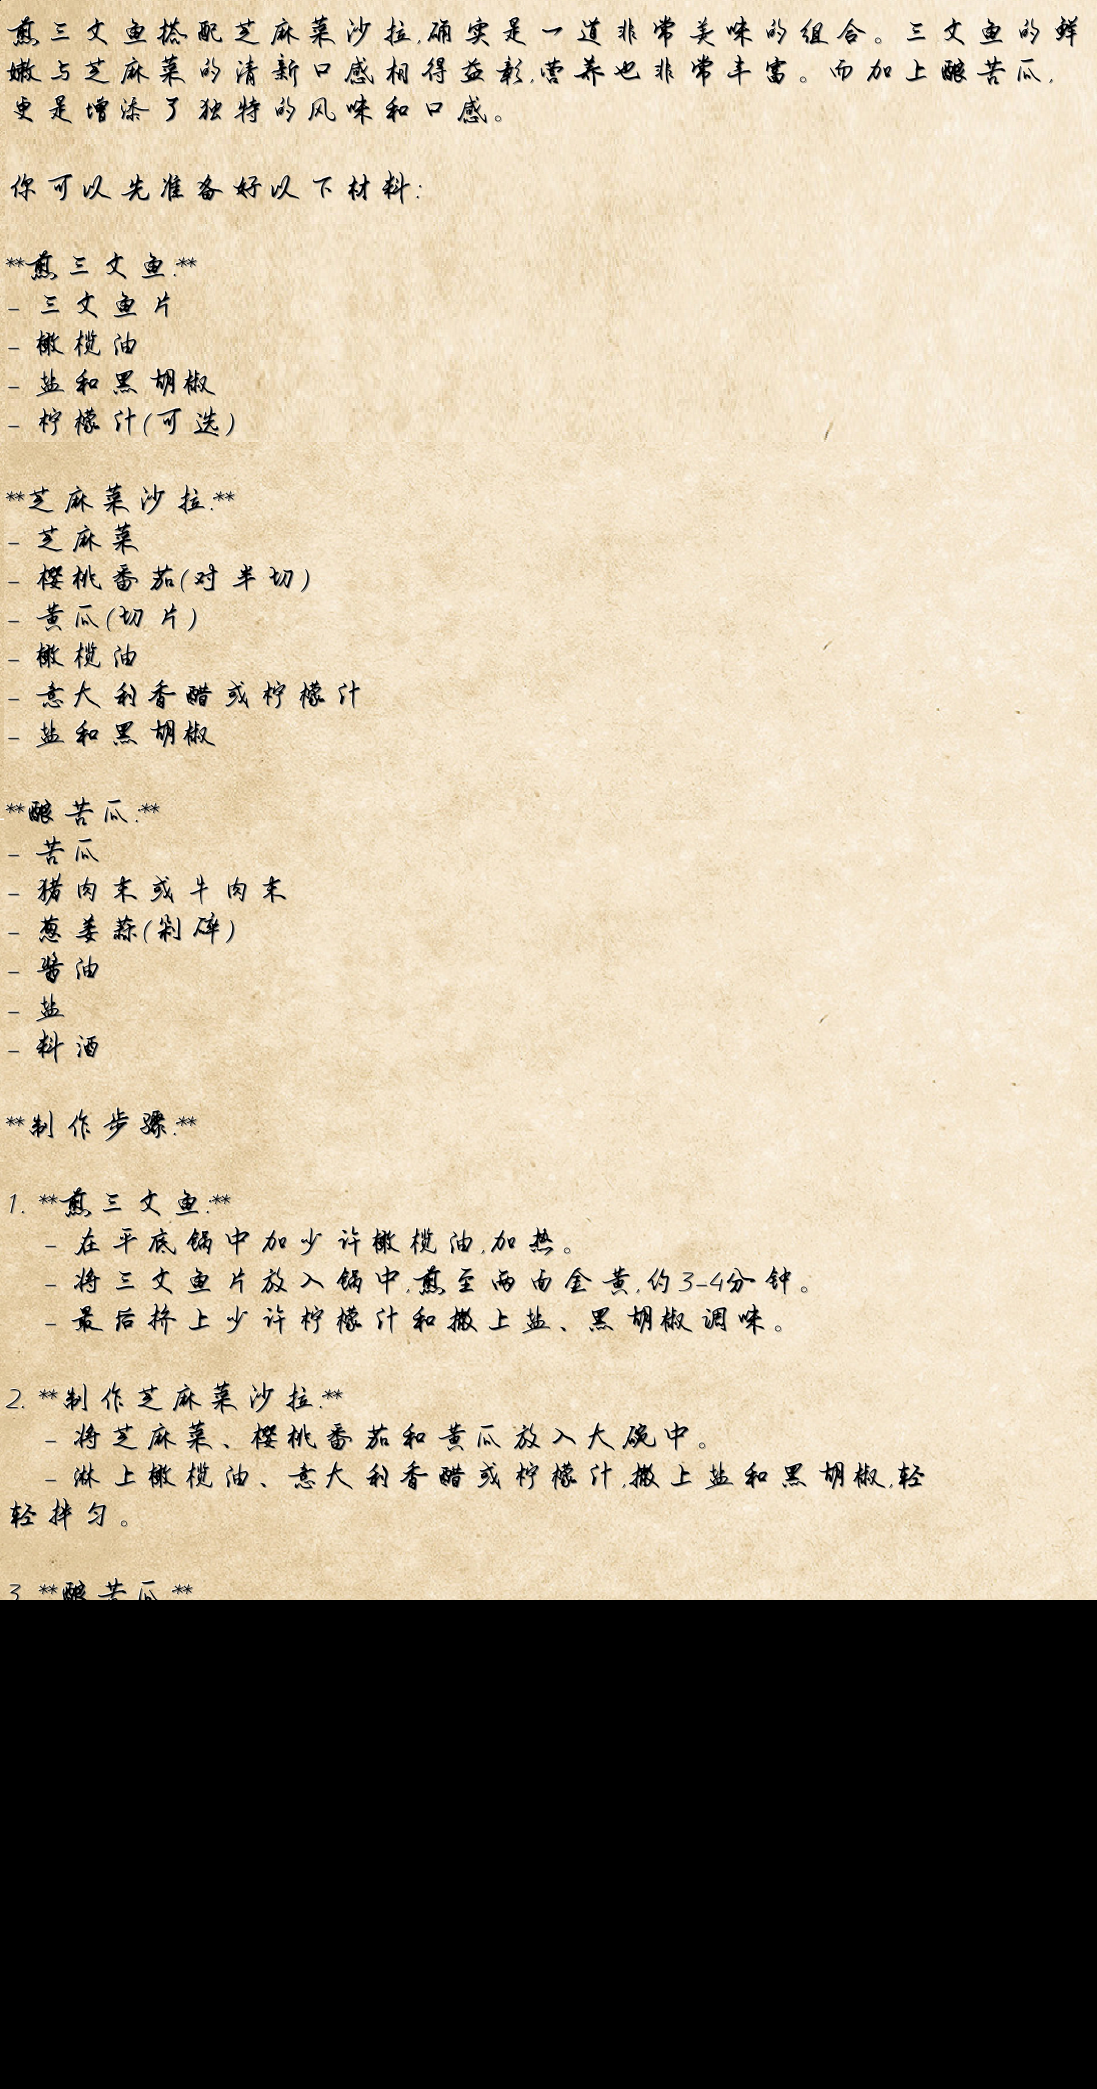 煎三文鱼搭配芝麻菜沙拉,确实是一道非常美味的组合。三文鱼的鲜
嫩与芝麻菜的清新口感相得益彰,营养也非常丰富。而加上酿苦瓜,
更是增添了独特的风味和口感。
你可以先准备好以下材料:
**煎三文鱼:**
- 三文鱼片
- 橄榄油
- 盐和黑胡椒
- 柠檬汁(可选)
**芝麻菜沙拉:**
- 芝麻菜
- 樱桃番茄(对半切)
- 黄瓜(切片)
- 橄榄油
- 意大利香醋或柠檬汁
- 盐和黑胡椒
**酿苦瓜:**
- 苦瓜
- 猪肉末或牛肉末
- 葱姜蒜(剁碎)
- 酱油
- 盐
- 料酒
**制作步骤:**
1. **煎三文鱼:**
- 在平底锅中加少许橄榄油,加热。
- 将三文鱼片放入锅中,煎至两面金黄,约3-4分钟。
- 最后挤上少许柠檬汁和撒上盐、黑胡椒调味。
2. **制作芝麻菜沙拉:**
- 将芝麻菜、樱桃番茄和黄瓜放入大碗中。
- 淋上橄榄油、意大利香醋或柠檬汁,撒上盐和黑胡椒,轻
轻拌匀。
3. **酿苦瓜:**